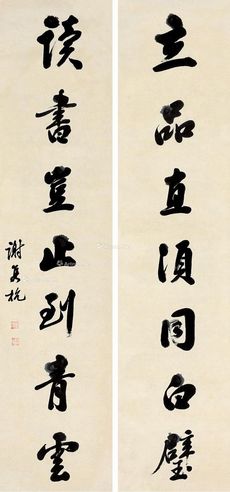 立品直須同白璧
讀書豈止到青雲